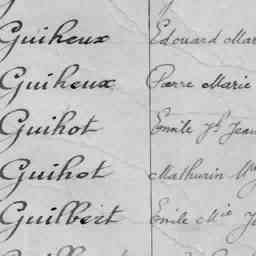 Guiheux Edouard Mar
Guiheux Pierre Marie
Guihot Emile Jh Jean
Guihot Mathurin
Guilbert Emile Mie